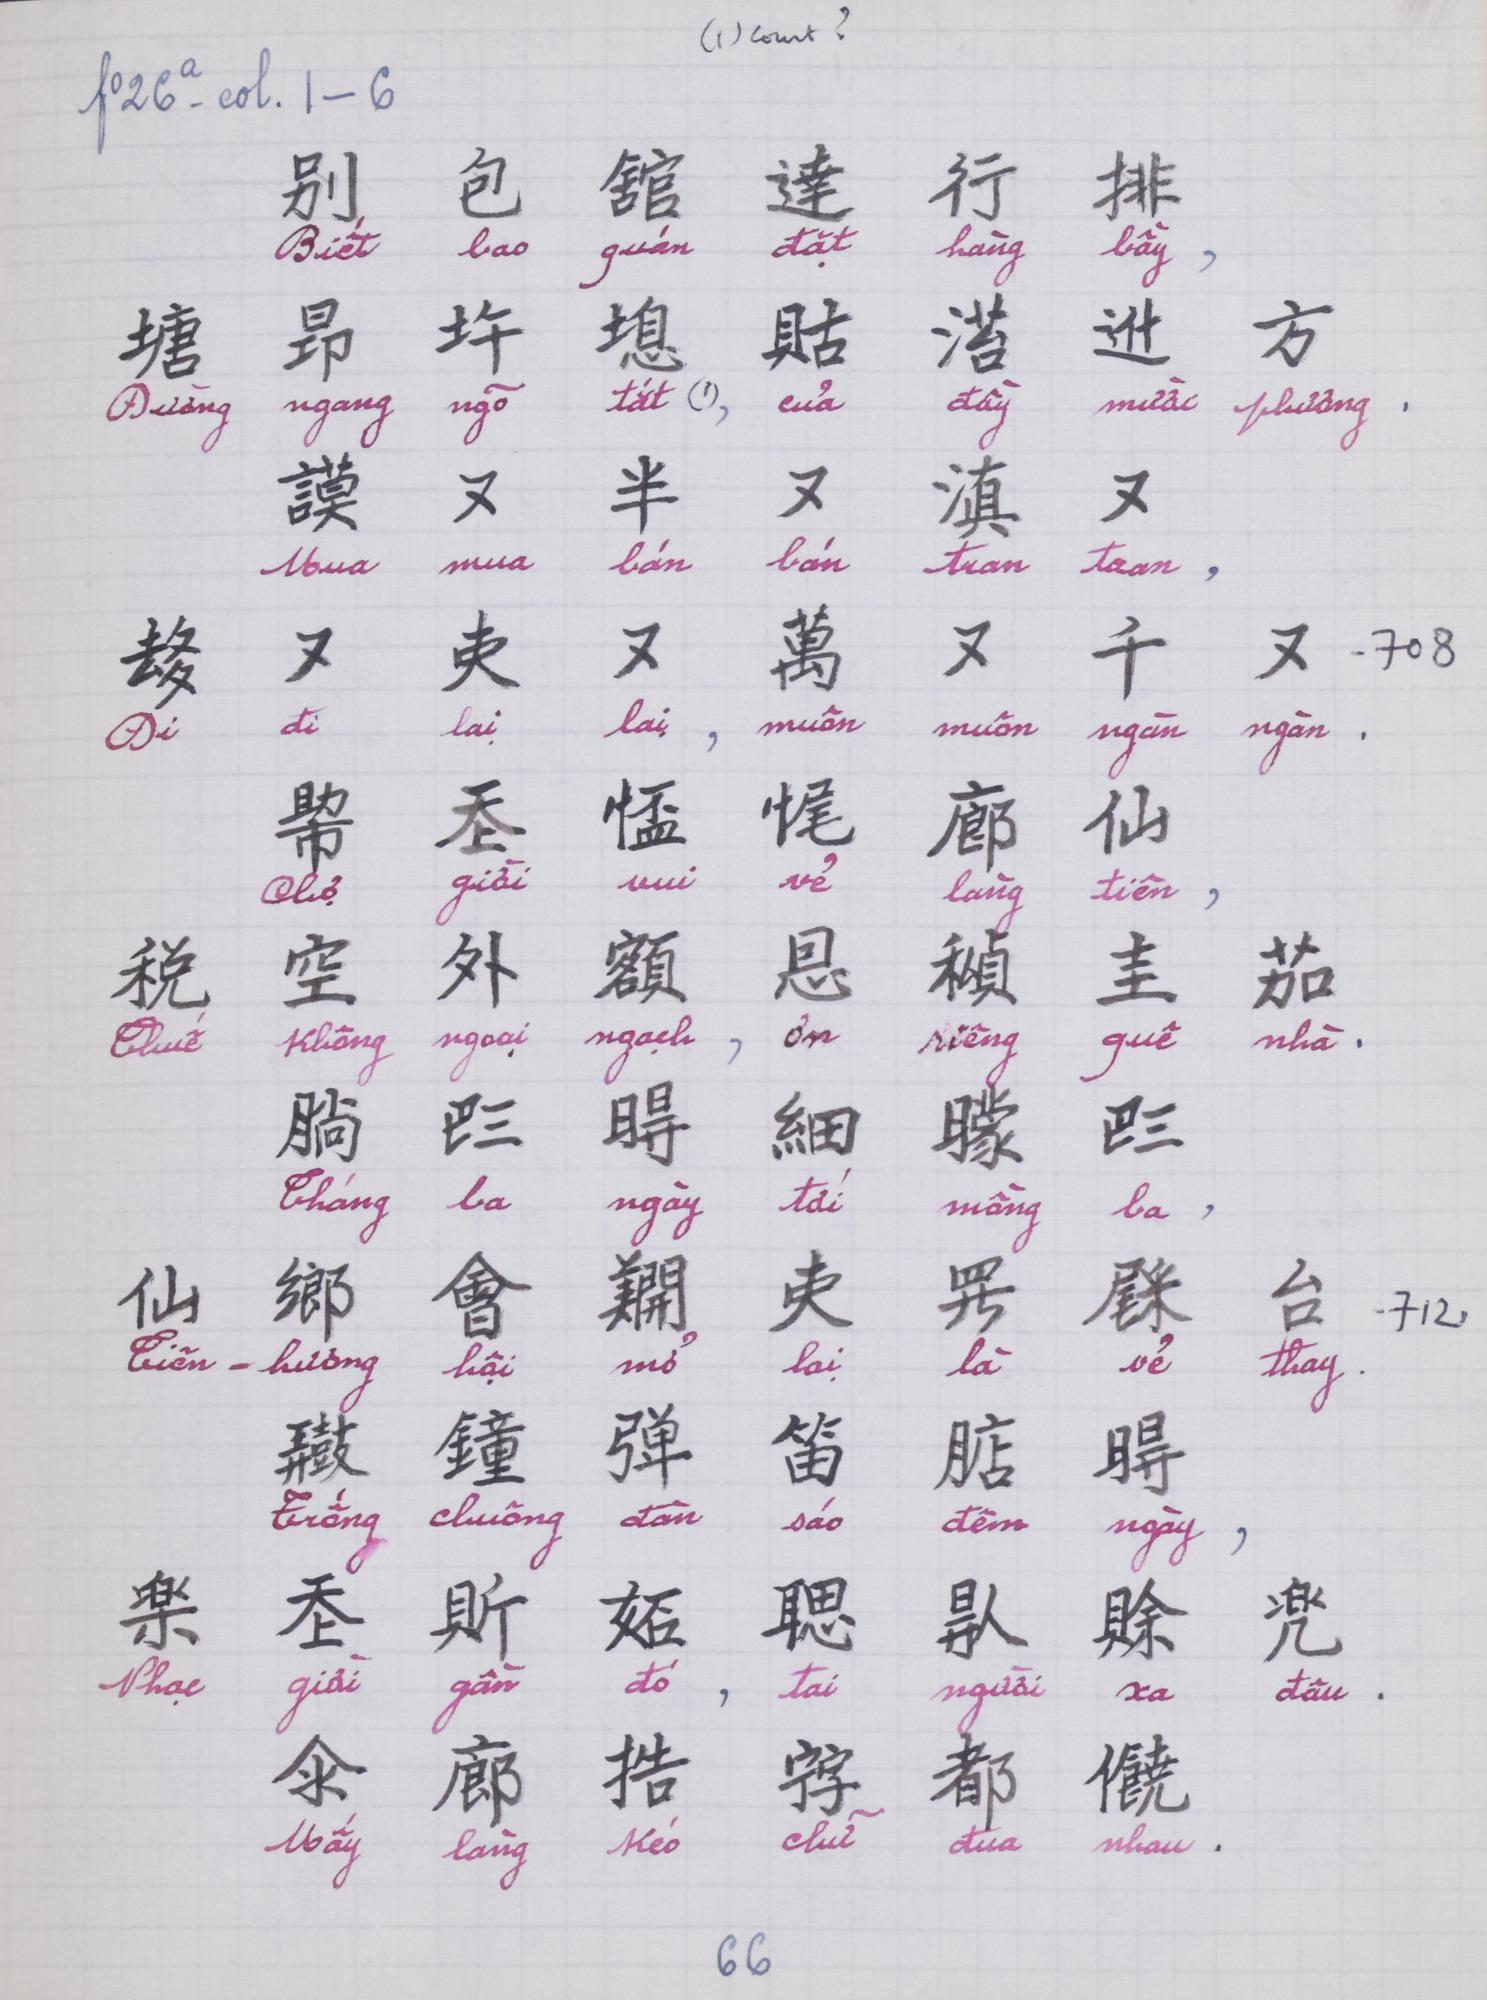 (1) court ?
fº 26ª - col. 1 – 6
別 包 舘 達 行 排
Biết bao quán đặt hàng bầy,
塘 昂 圤 熄 𧵑 㴜 𨑮 方
Đường ngang ngõ tắt (1), của đầy mười phương.
謨 又 半 又 滇 又
Mua mua bán bán tran tran,
𠫾 又 吏 又 萬 又 千 又 - 708
Đi đi lại lại, muôn muôn ngàn ngàn.
𢄂 𡗶 𢝙 𢗼 廊 仙
Chợ giời vui vẻ làng tiên,
税 空 外 額 恩 稹 圭 茹
Thuế không ngoại ngạch, ơn riêng quê nhà.
𣎃 𠀧 𣈗 細 𣋽 𠀧
Tháng ba ngày tới mồng ba,
仙 鄉 會 𨷑 吏 𱺵 𨤔 台 - 712
Tiên - hương hội mở lại là vẻ thay.
𪔠 鐘 弹 笛 𣎀 𣈗
Trống chuông đàn sáo đêm ngày,
楽 𡗶 𧵆 妬 聦 𠊛 賖 兠
Nhạc giời gần đó, tai người xa đâu.
𠇍 廊 捁 𡨸 都 𠑬
Mấy làng kéo chữ đua nhau.
66